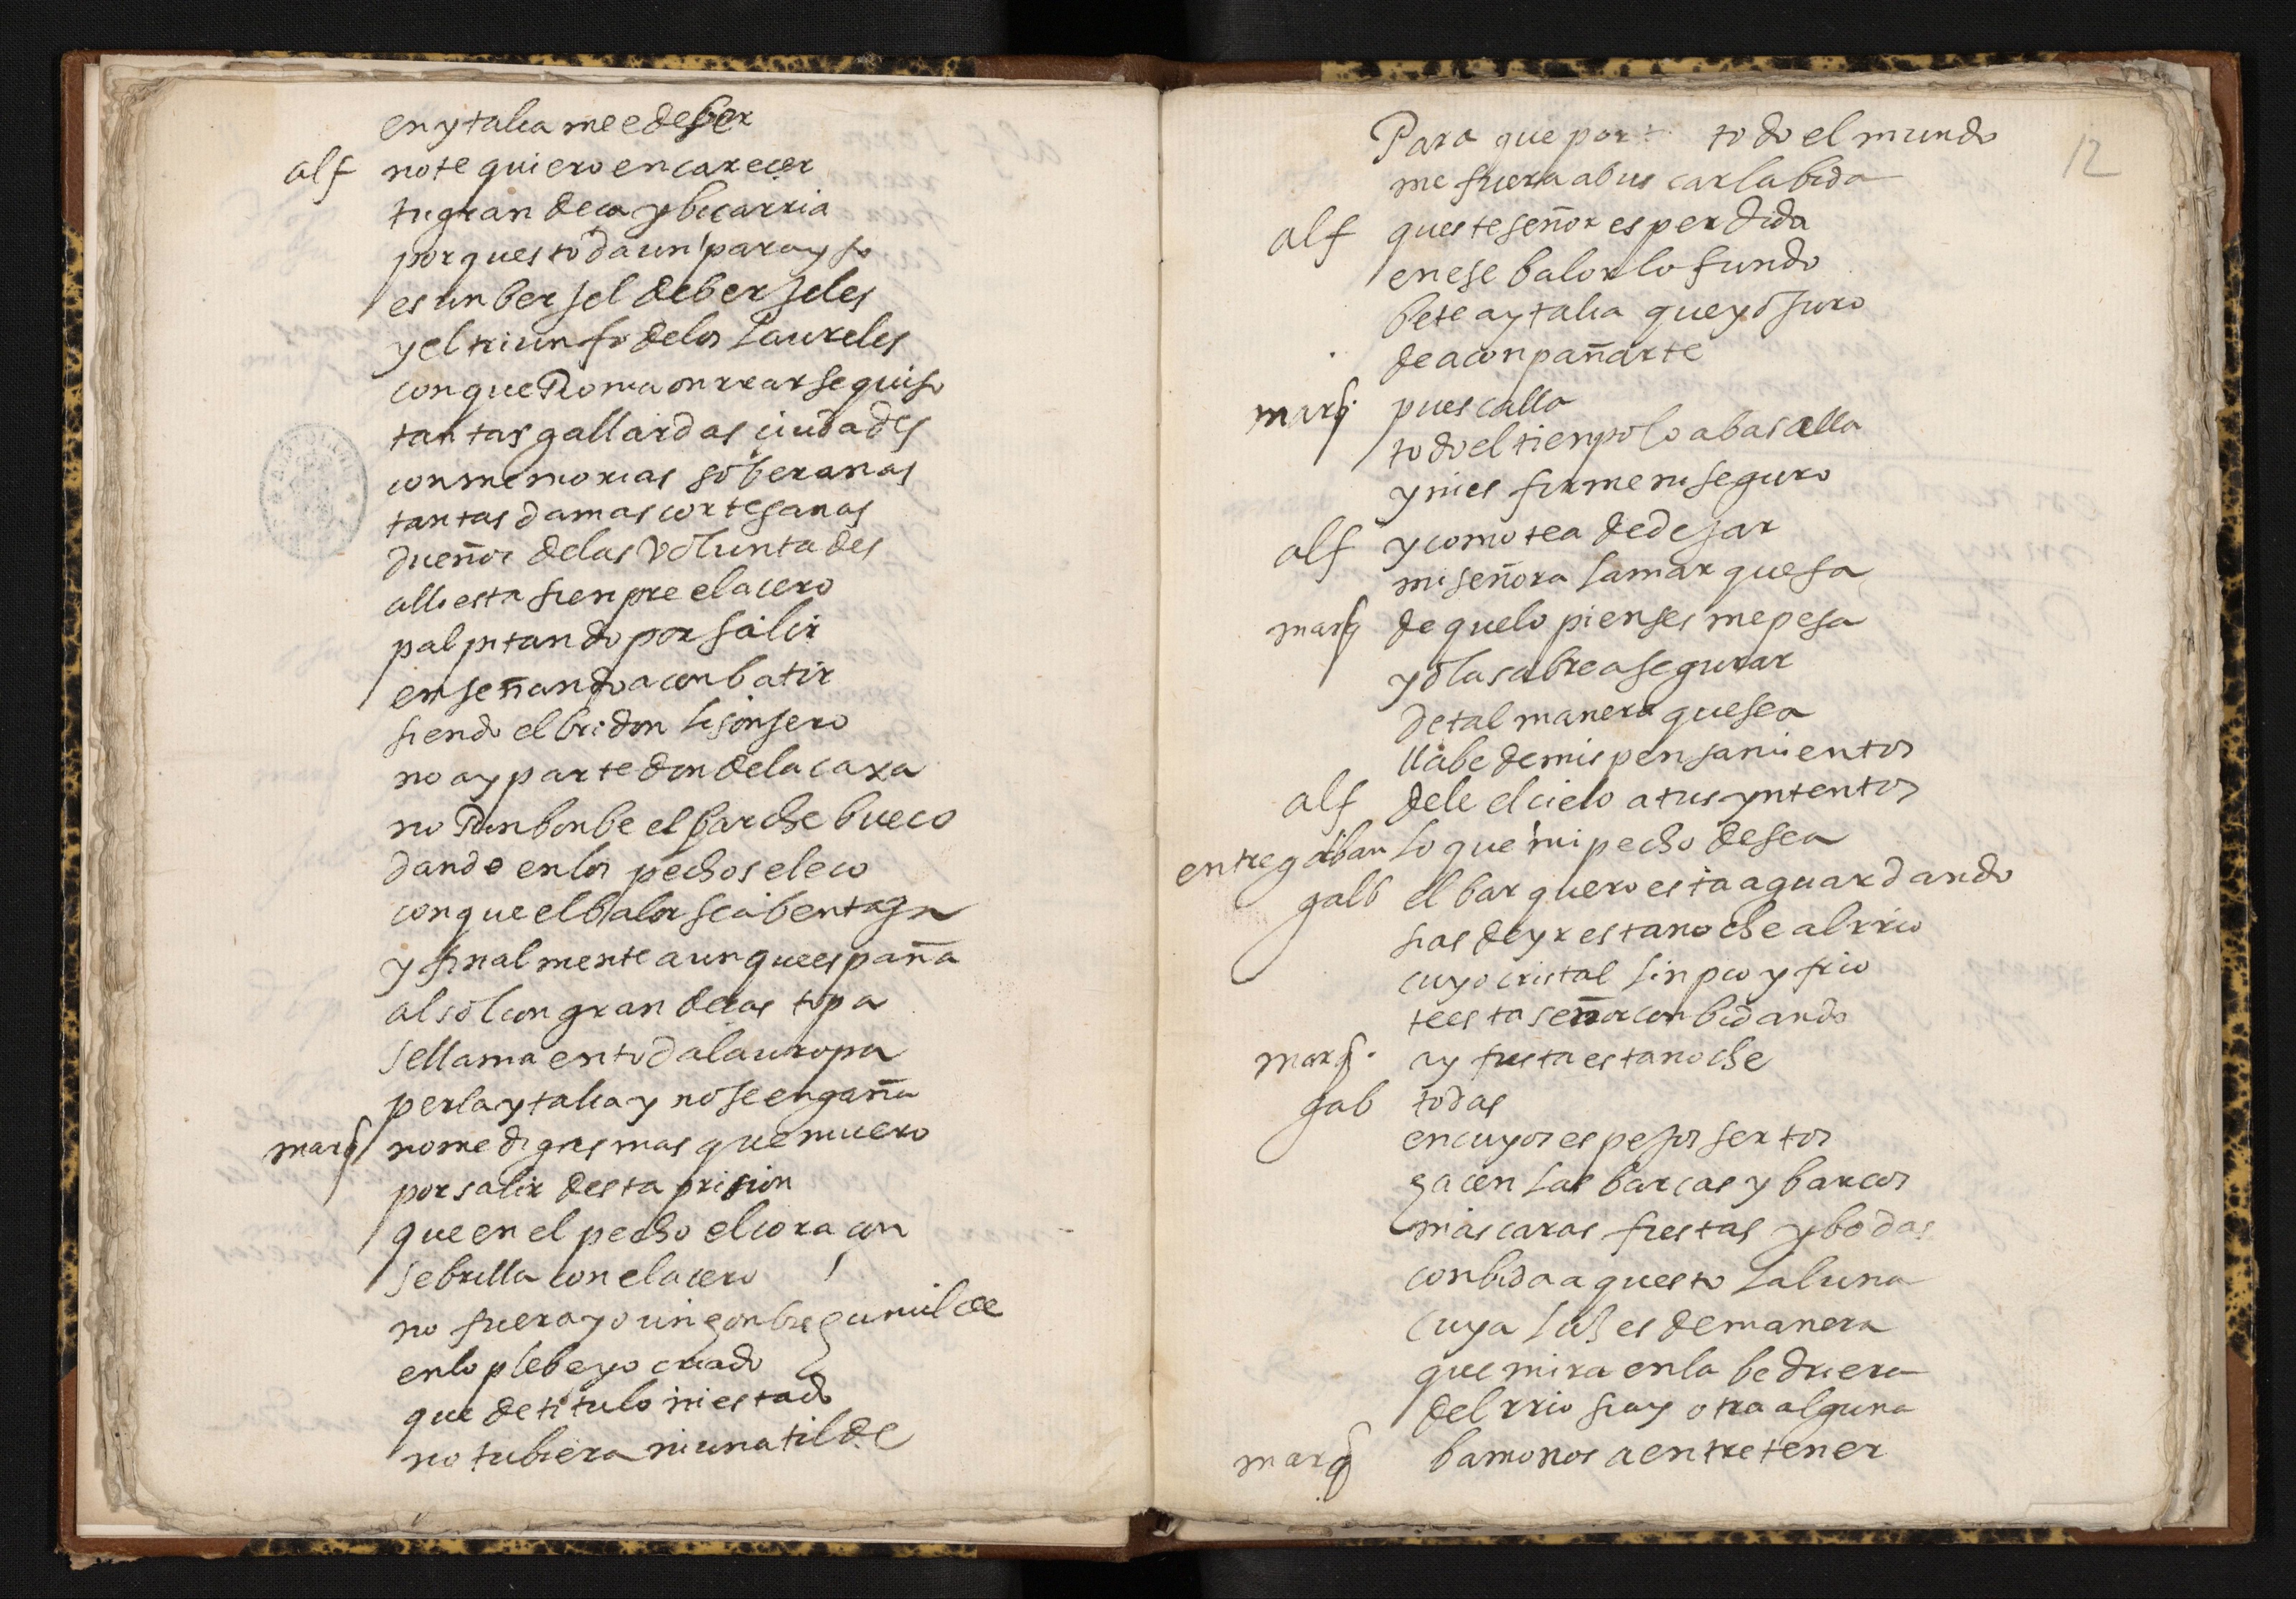 en ytalia me e de ber
alf no te quiero encarecer
su grandeca y bicarria
porques toda un parayso
es un berjel de berjeles
y el triunfo de los Laureles
con que Roma onrrarse quiso
tantas gallardas ciudades
con memorias soberanas
tantas damas cortesanas
dueños de las voluntades
alli esta sienpre el acero
palpitando por salir
enseñando a conbatir
siendo el bridon lisonjero
no ay parte donde la caxa
no Ronbonbe el parche bueco
dando en los pechos el eco
con que el balor se abentaja
y finalmente aunque españa
al sol con grandecas topa
se llama en toda la uropa
perla ytalia y no se engaña
marq no me digas mas que muero
por salir desta prision
que en el pecho el coracon
se brilla con el acero
no fuera yo un honbre humilde
en lo plebeyo criado
que de titulo ni estado
no tubiera ni una tilde
12
Para que por todo el mundo
me fuera a buscar la bida
alf queste señor es perdida
en ese balor lo fundo
bete a ytalia que yo juro
de aconpañarte
marq. pues calla
todo el tienpo lo abasalla
y ni es firme ni seguro
alf y como te a de dejar
mi señora La marquesa
marq de que lo pienses me pesa
yo la sabre asegurar
de tal manera que sea
llabe de mis pensamientos
alf dele el cielo a tus yntentos
lo que mi pecho desea
entre galban
galb el barquero esta aguardando
si as de yr esta noche al rrio
cuyo cristal linpio y frio
te esta señor conbidando
marq. ay fiesta esta noche
gab todas
en cuyos espejos sertos
hacen Las barcas y barcos
mascaras fiestas y bodas
conbida a questo La luna
cuya Luz es de manera
que mira en la bedriera
del rrio si ay otra alguna
marq bamonos a entretener